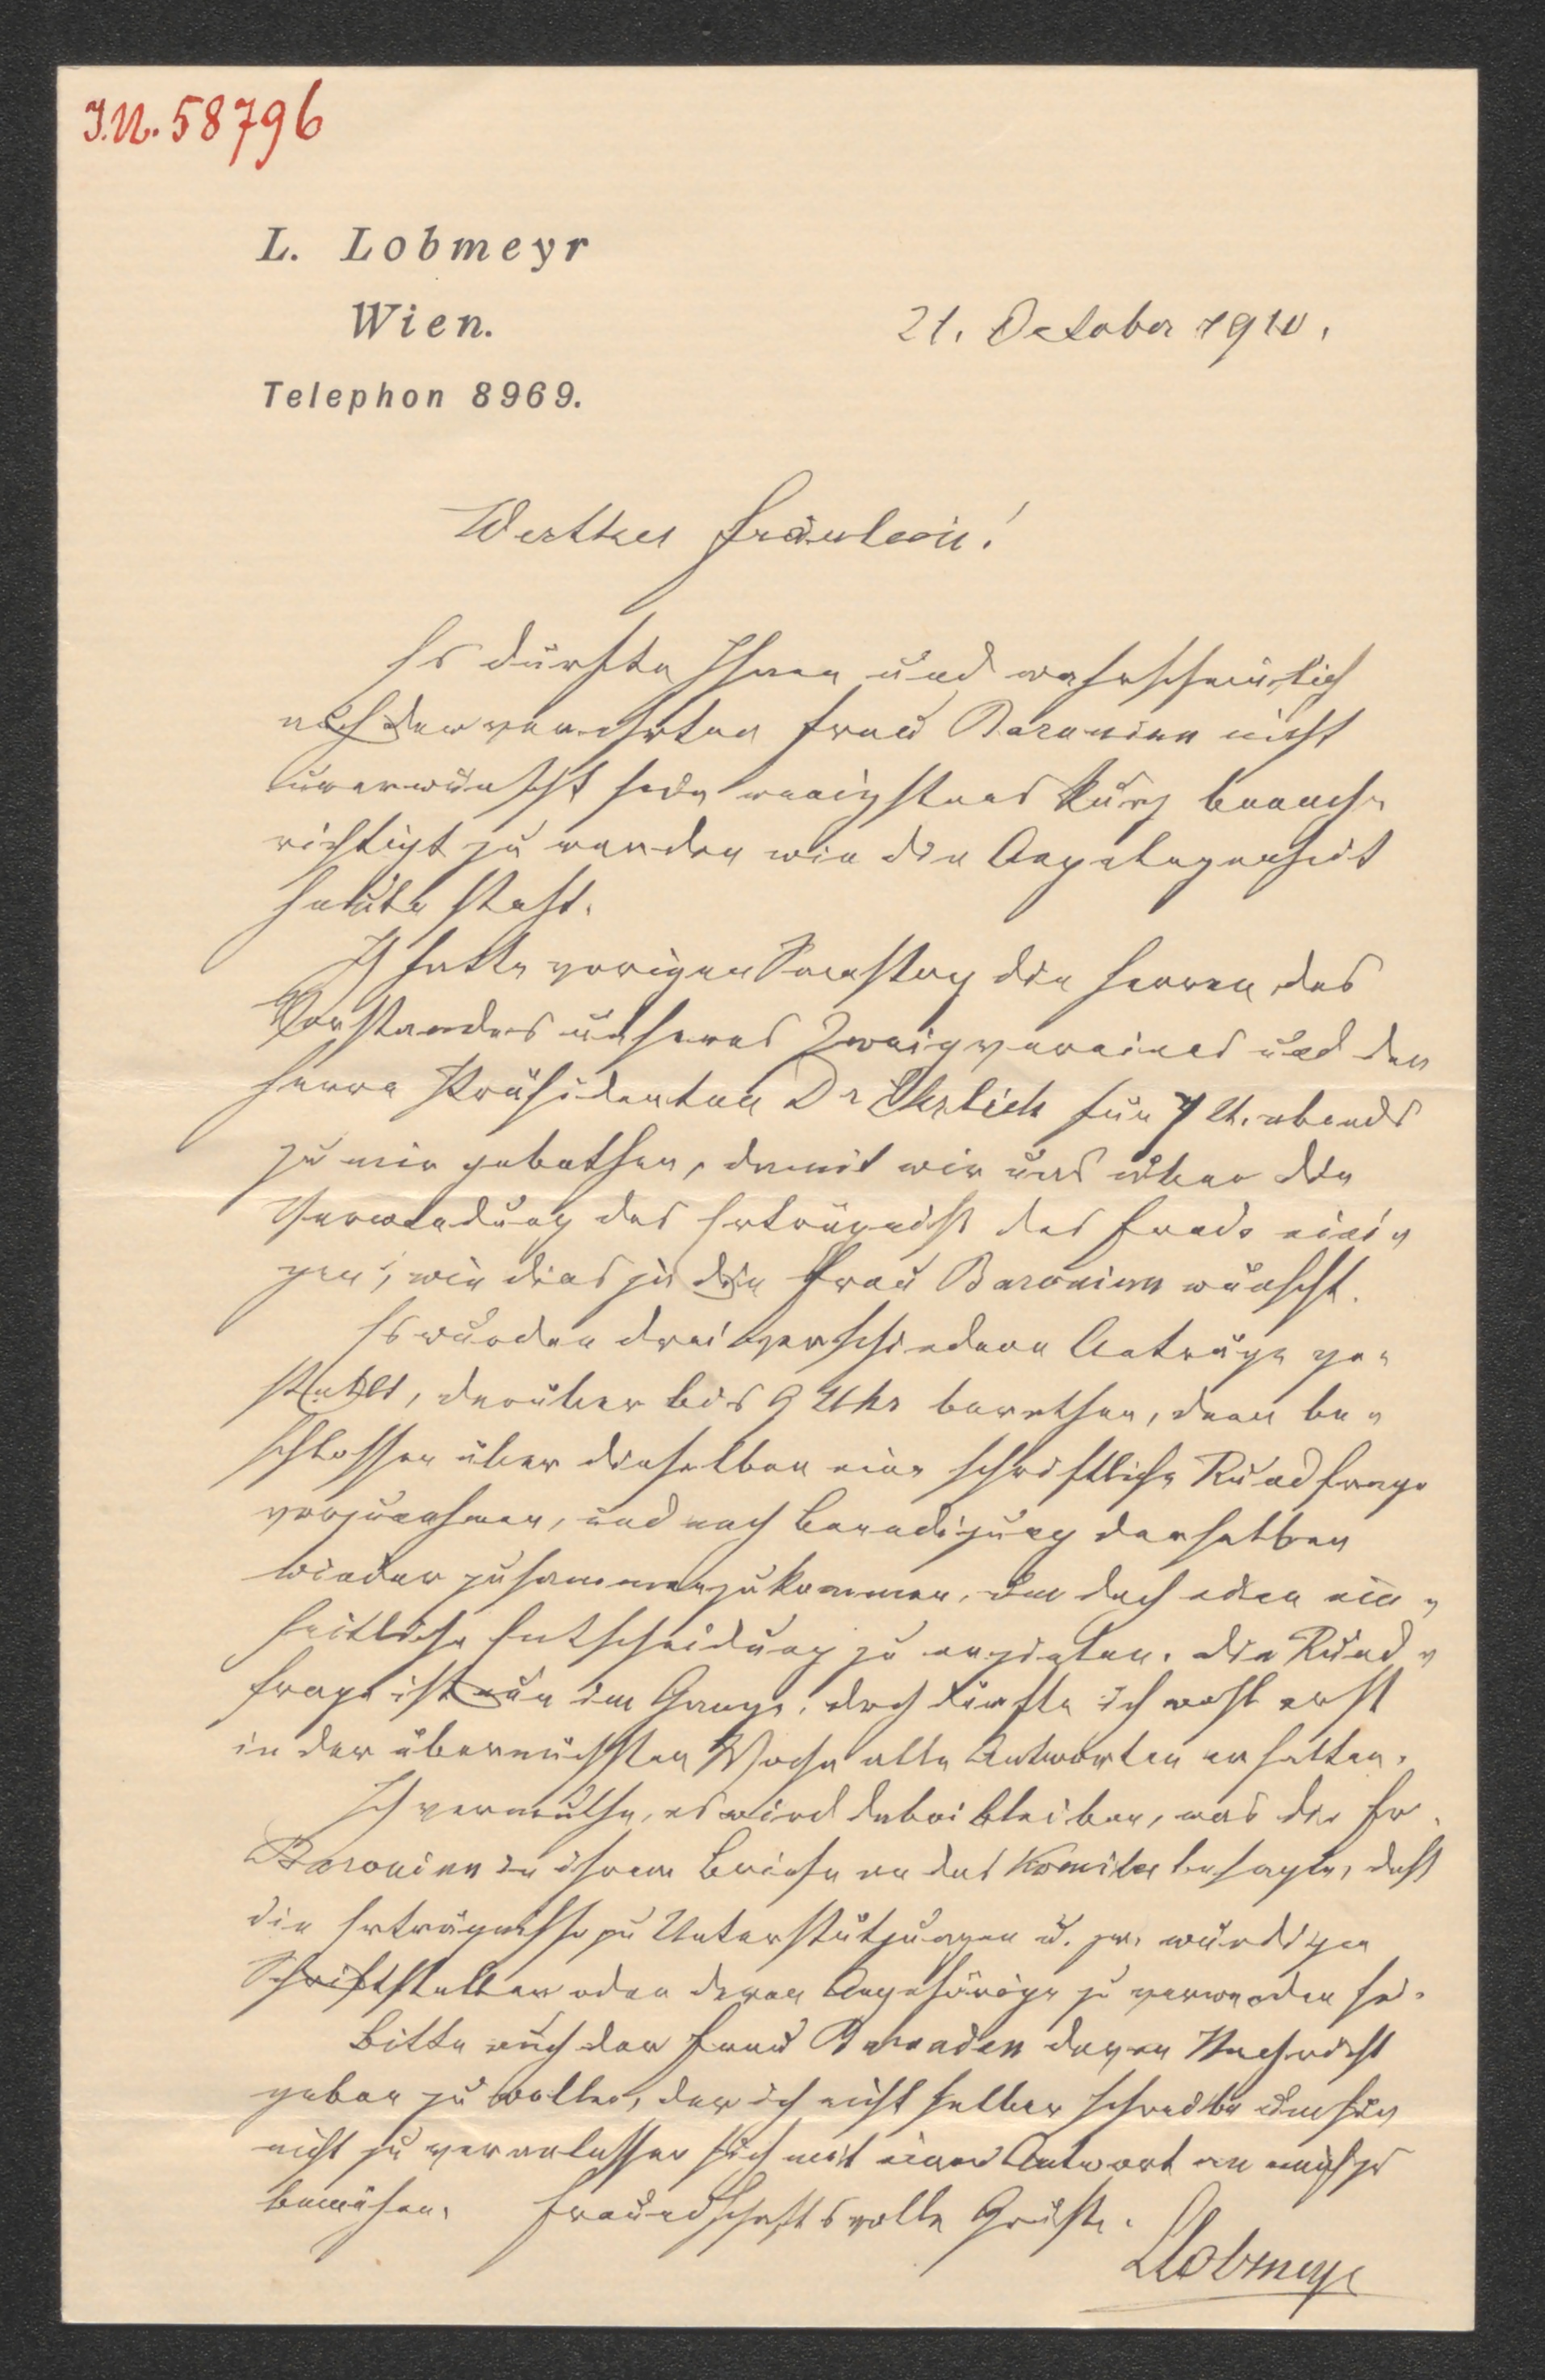 I.N. 58796
L. Lobmeyr
Wien.
Telephon 8969.
21. October 1910.
Werthes Fräulein!
Es dürfte Ihnen und wahrscheinlich
auch der verehrten Frau Baronin nicht
unerwünscht sein wenigstens kurz benach-
richtigt zu werden wie die Angelegenheit
heute steht.
Ich hatte vorigen Samstag die Herren des
Vorstandes unseres Zweigvereines und den
Herrn Präsidenten Dr Ehrlich für 7 U. abends
zu mir gebethen, damit wir uns über die
Verwendung des Erträgniß des Fonds eini-
gen, wie dies ja die Frau Baronin wünscht.
Es wurden drei verschiedene Anträge ge-
stellt, darüber bis 9 Uhr berathen, dann be-
schlossen über dieselben eine schriftliche Rundfrage
vorzunehmen, und nach Beendigung derselben
wieder zusammenzukommen, um doch eine ein-
heitliche Entscheidung zu erzielen. Die Rund-
frage ist nun im Gange, doch dürfte ich wohl erst
in der übernächsten Woche alle Antworten erhalten.
Ich vermuthe, es wird dabei bleiben, was die Fr.
Baronin in ihrem Briefe an das Komitee besagte, daß
die Erträgnisse zu Unterstützungen u. zw. würdiger
Schriftsteller oder deren Angehörige zu verwenden sei.
Bitte auch der Frau Baronin davon Nachricht
geben zu wollen, der ich nicht selber schreibe um sie
nicht zu veranlassen sich mit einer Antwort an mich zu
bemühen. Freundschaftsvolle Grüße.
LLobmeyr